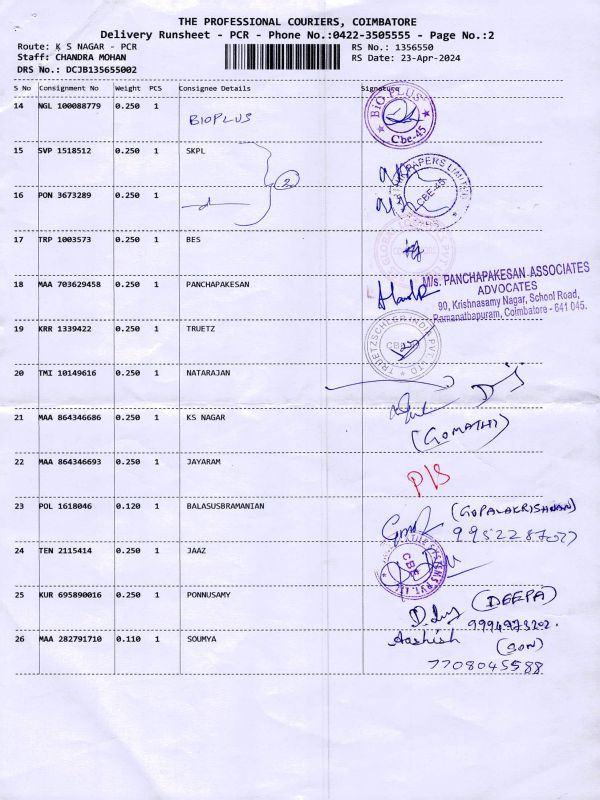 THE PROFESSIONAL COURIERS, COIMBATORE
Delivery Runsheet - PCR - Phone No.:0422-3505555 - Page No.:2
Route: K S NAGAR - PCR
RS No.: 1356550
Staff: CHANDRA MOHAN
RS Date: 23-Apr-2024
DRS No.: DCJB135655002
S No Consignment No Weight PCS Consignee Details Signature
14 NGL 100088779 0.250 1
BIOPLUS
BIO PLUS
Cbe-45
15 SVP 1518512 0.250 1 SKPL
2
PAPERS LIMITED
CBE-45
16 PON 3673289 0.250 1
17 TRP 1003573 0.250 1 BES
18 MAA 703629458 0.250 1 PANCHAPAKESAN
M/s. PANCHAPAKESAN ASSOCIATES
ADVOCATES
90, Krishnasamy Nagar, School Road,
Ramanathapuram, Coimbatore - 641 045.
19 KRR 1339422 0.250 1 TRUETZ
TRUETZSCHLER INDIA PVT LTD
20 TMI 10149616 0.250 1 NATARAJAN
21 MAA 864346686 0.250 1 KS NAGAR
(GOMATHI)
22 MAA 864346693 0.250 1 JAYARAM
P/S
23 POL 1618046 0.120 1 BALASUSBRAMANIAN
(GOPALAKRISHNAN)
24 TEN 2115414 0.250 1 JAAZ
CBE
25 KUR 695890016 0.250 1 PONNUSAMY
(DEEPA)
26 MAA 282791710 0.110 1 SOUMYA
Aashish
(SON)
7708045588